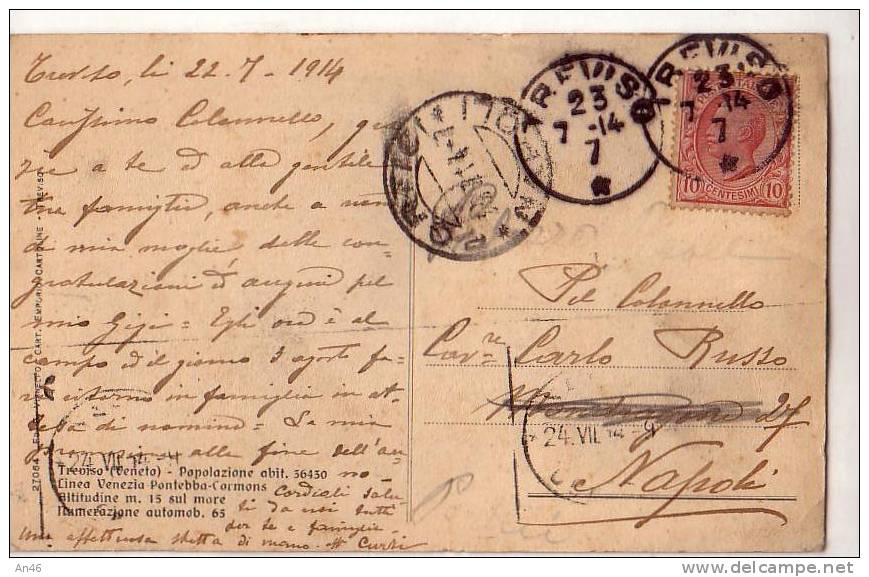 Treviso, li 22.7.1914
Carissimo Colonnello, gra-
zie a te e alla gentile
tua famiglia, anche a nome
di mia moglie delle con-
gratulazioni d'auguri pel
mio Gigi = Egli ora è al
campo ed il giorno 3 agosto fa-
rà ritorno in famiglia in at-
tesa di nomina = La mia
alle fine dell'an-
no =
Cordiali salu-
ti da noi tutti
per te e famiglia
una affettuosa stretta di mano. Curzi
Treviso (Veneto) - Popolazione abit. 36450
Linea Venezia Pontebba-Cormons
Altitudine m. 15 sul mare
Numerazione automob. 65
27064
CART. EMPORIO CARTOLINE - TREVISO
TREVISO
23
7-14
7
*
TREVISO
23
7-14
7
*
10 CENTESIMI 10
Pel Colonnello
Cavre Carlo Russo
27
24.VII.14-9
Napoli
24.VII.14-9
An46
delcampe.net